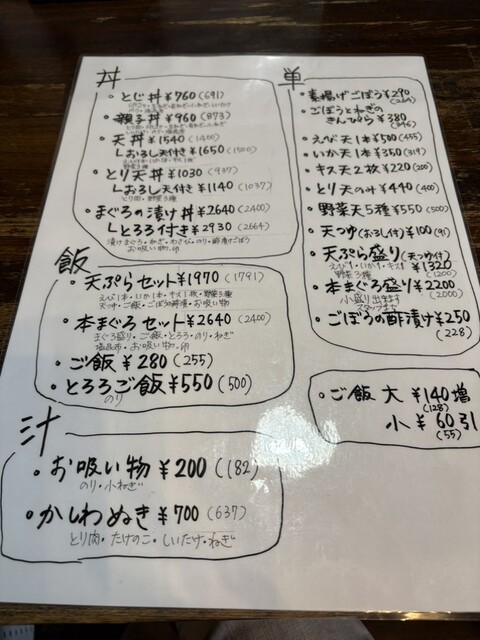 丼
・とじ丼 ¥760 (691)
・親子丼 ¥960 (873)
・天丼 ¥1540 (1400)
┗おろし天付き ¥1650 (1500)
えび1本・いか1本・キス1枚
野菜3種
・とり天丼 ¥1030 (937)
┗おろし天付き ¥1140 (1037)
とり肉・野菜3種
・まぐろの漬け丼 ¥2640 (2400)
┗とろろ付き ¥2930 (2664)
漬けまぐろ・ねぎ・わさび・のり・酢漬けごぼう
お吸い物・卵
飯
・天ぷらセット ¥1970 (1791)
えび1本・いか1本・キス1枚・野菜3種
天つゆ・ご飯・ごぼうの酢漬・お吸い物
・本まぐろセット ¥2640 (2400)
まぐろ盛り・ご飯・とろろ・のり・ねぎ
塩昆布・お吸い物・卵
・ご飯 ¥280 (255)
・とろろご飯 ¥550 (500)
のり
汁
・お吸い物 ¥200 (182)
のり・小ねぎ
・かしわぬき ¥700 (637)
とり肉・たけのこ・しいたけ・ねぎ
単
・素揚げごぼう ¥290
(264)
・ごぼうとねぎの
きんぴら ¥380
(346)
・えび天1本 ¥500 (455)
・いか天1本 ¥350 (319)
・キス天2枚 ¥220 (200)
・とり天のみ ¥440 (400)
・野菜天5種 ¥550 (500)
・天つゆ(おろし付) ¥100 (91)
・天ぷら盛り (天つゆ付)
えび1・いか1・キス1 ¥1320
野菜3種 (1200)
・本まぐろ盛り ¥2200
小盛り出来ます (2000)
・ごぼうの酢漬け ¥250
(228)
・ご飯 大 ¥140増
(128)
小 ¥60引
(55)